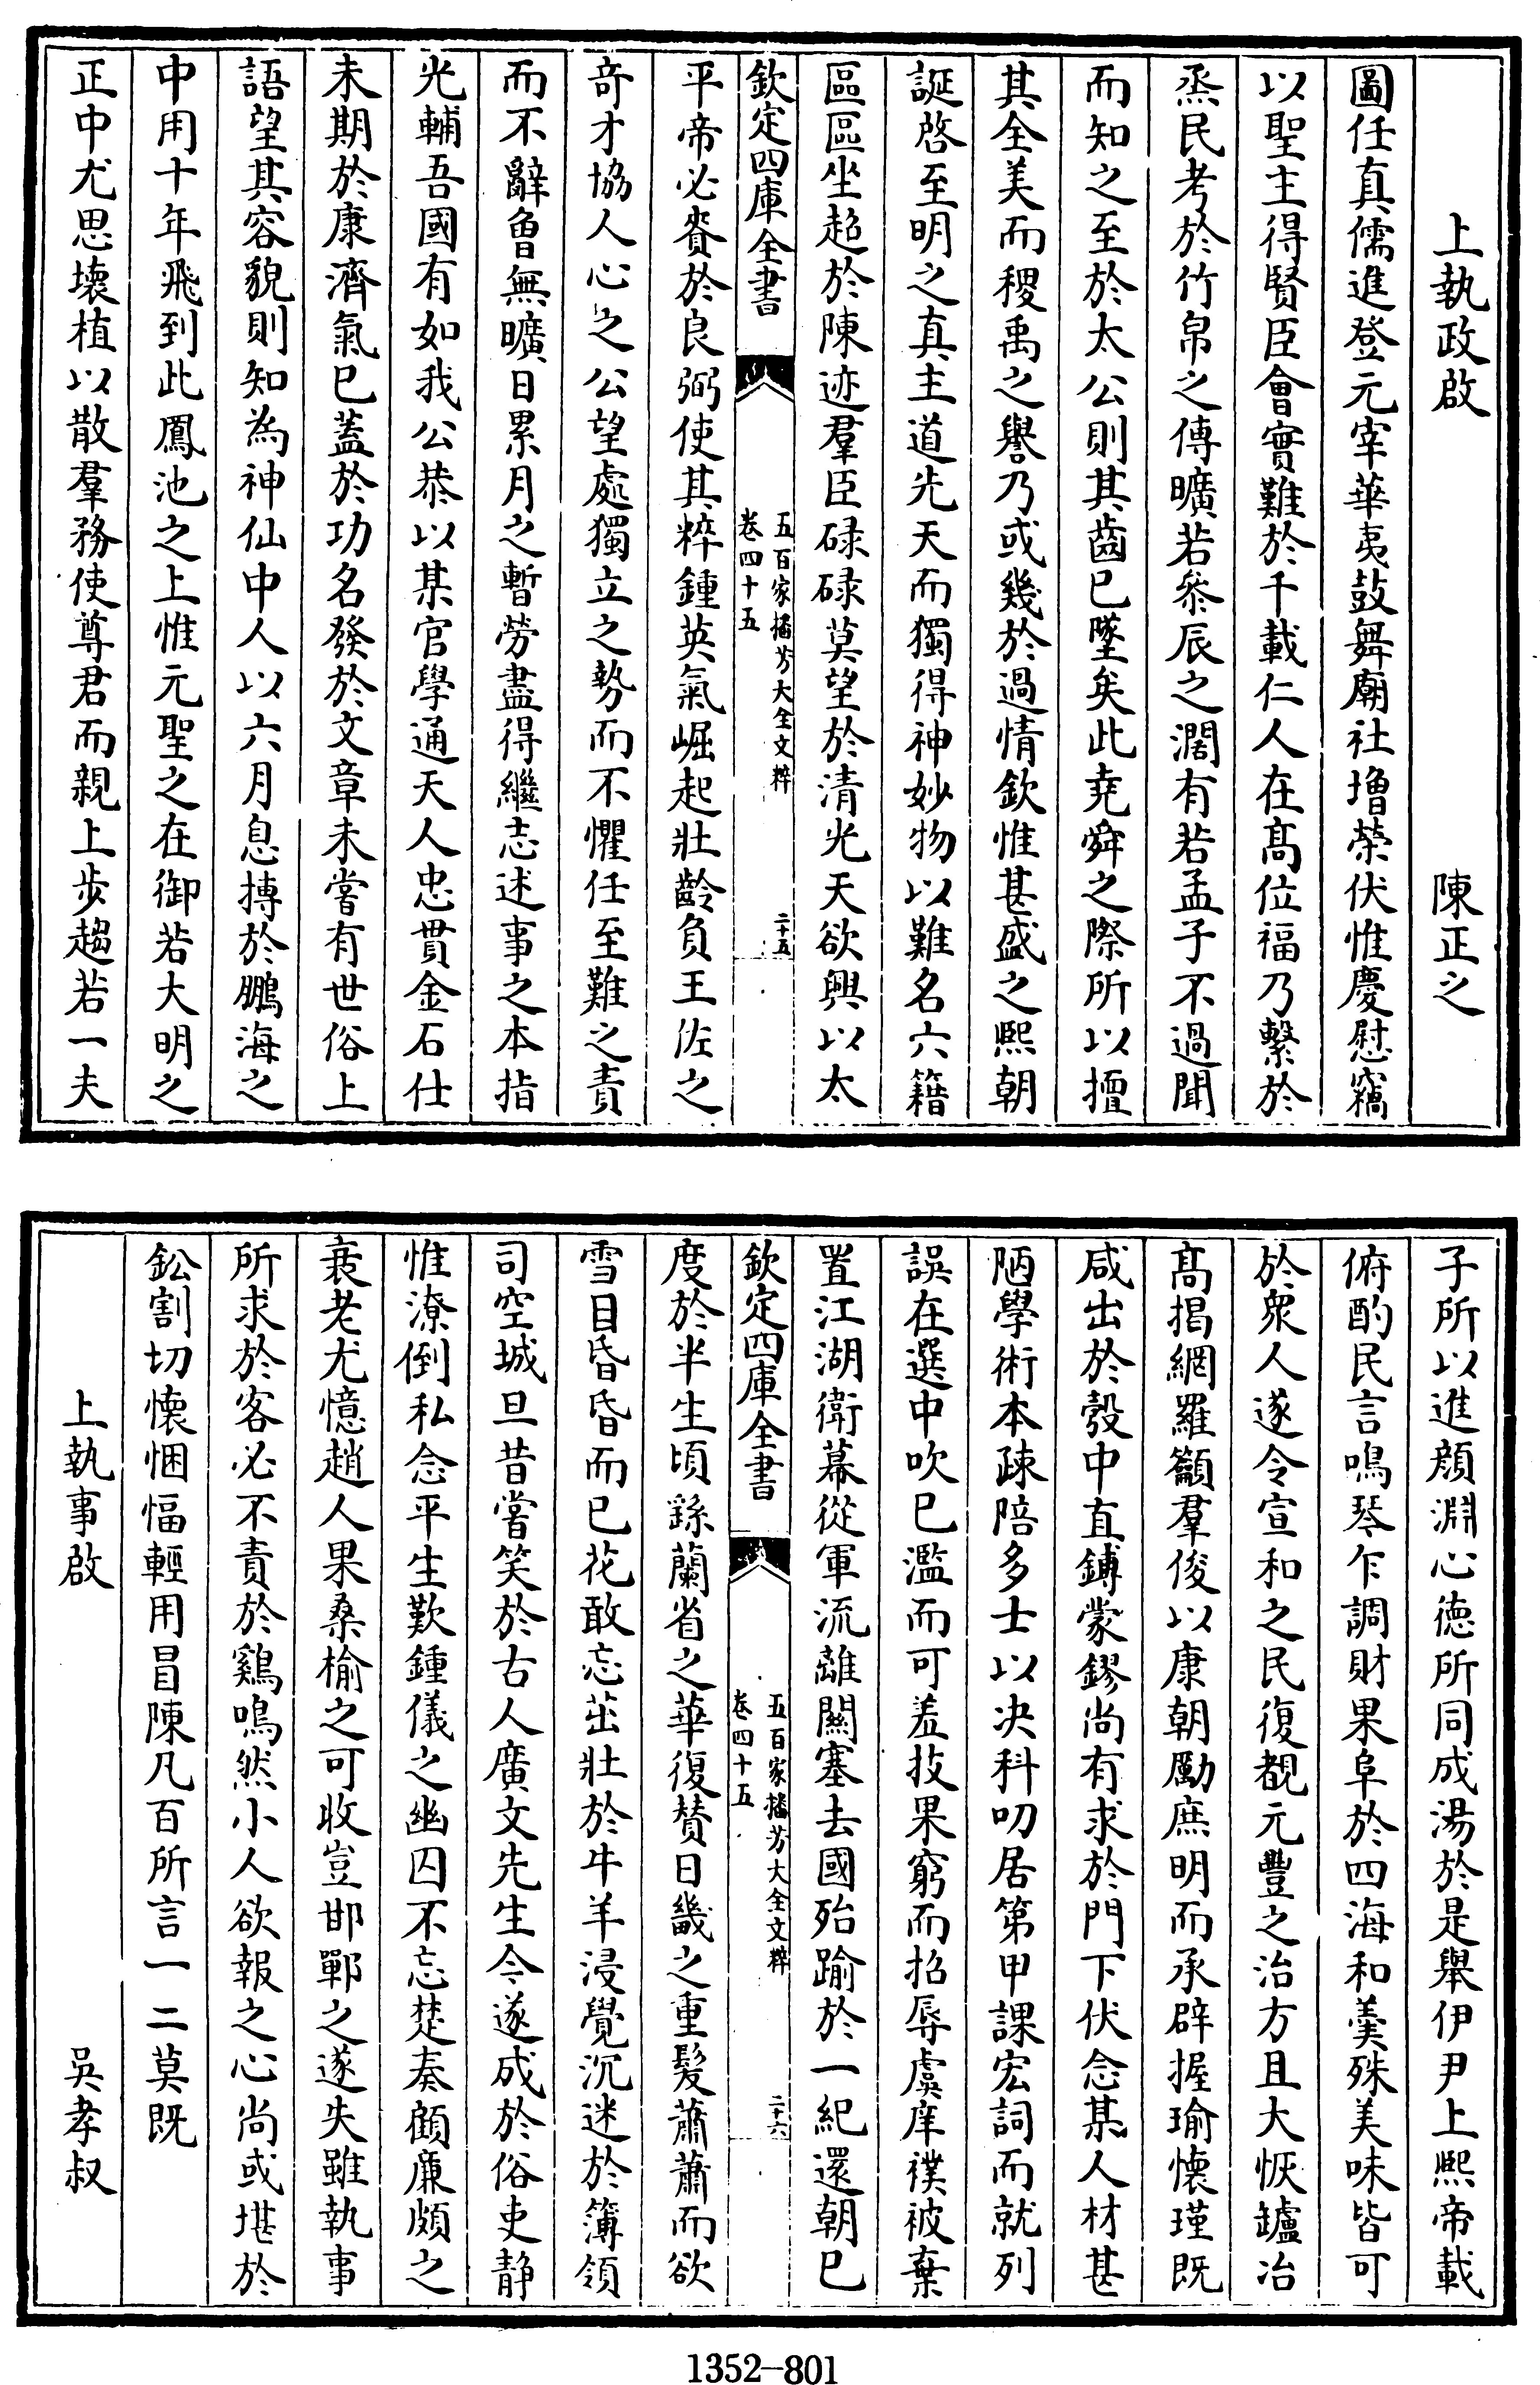 上執政啟 陳正之
圖任真儒進登元宰華夷鼓舞廟社増榮伏惟慶慰竊
以聖主得賢臣會實難於千載仁人在髙位福乃繫於
烝民考於竹帛之傳曠若參辰之濶有若孟子不過聞
而知之至於太公則其齒已墜矣此堯舜之際所以擅
其全美而稷禹之譽乃或幾於過情欽惟甚盛之熙朝
誕啓至明之真主道先天而獨得神妙物以難名六籍
區區坐超於陳迹羣臣碌碌莫望於清光天欲興以太
欽定四庫全書
五百家播芳大全文粹
卷四十五
二十五
平帝必賚於良弼使其粹鍾英氣崛起壯齡負王佐之
奇才協人心之公望處獨立之勢而不懼任至難之責
而不辭魯無曠日累月之暫勞盡得繼志述事之本指
光輔吾國有如我公恭以某官學通天人忠貫金石仕
未期於康濟氣已蓋於功名發於文章未嘗有世俗上
語望其容貌則知為神仙中人以六月息摶於鵬海之
中用十年飛到此鳳池之上惟元聖之在御若大明之
正中尤思壊植以散羣務使尊君而親上步趨若一夫
子所以進顔淵心徳所同成湯於是舉伊尹上熙帝載
俯酌民言鳴琴乍調財果阜於四海和羮殊美味皆可
於衆人遂令宣和之民復覩元豐之治方且大恢鑪冶
髙掲網羅籲羣俊以康朝勵庶明而承辟握瑜懷瑾既
咸出於彀中直鏄蒙鏐尚有求於門下伏念某人材甚
陋學術本疎陪多士以决科叨居第甲課宏詞而就列
誤在選中吹已濫而可羞技果窮而招辱虞庠襆被棄
置江湖衛幕從軍流離關塞去國殆踰於一紀還朝已
欽定四庫全書
五百家播芳大全文粹
卷四十五
二十六
度於半生頃繇蘭省之華復賛日畿之重髮蕭蕭而欲
雪目昏昏而已花敢忘茁壯於牛羊浸覺沉迷於簿領
司空城旦昔嘗笑於古人廣文先生今遂成於俗吏静
惟潦倒私念平生歎鍾儀之幽囚不忘楚奏顧廉頗之
衰老尤憶趙人果桑榆之可收豈邯鄲之遂失雖執事
所求於客必不責於鷄鳴然小人欲報之心尚或堪於
鈆割切懷悃愊輕用冒陳凡百所言一二莫既
上執事啟 吳孝叔
1352—801